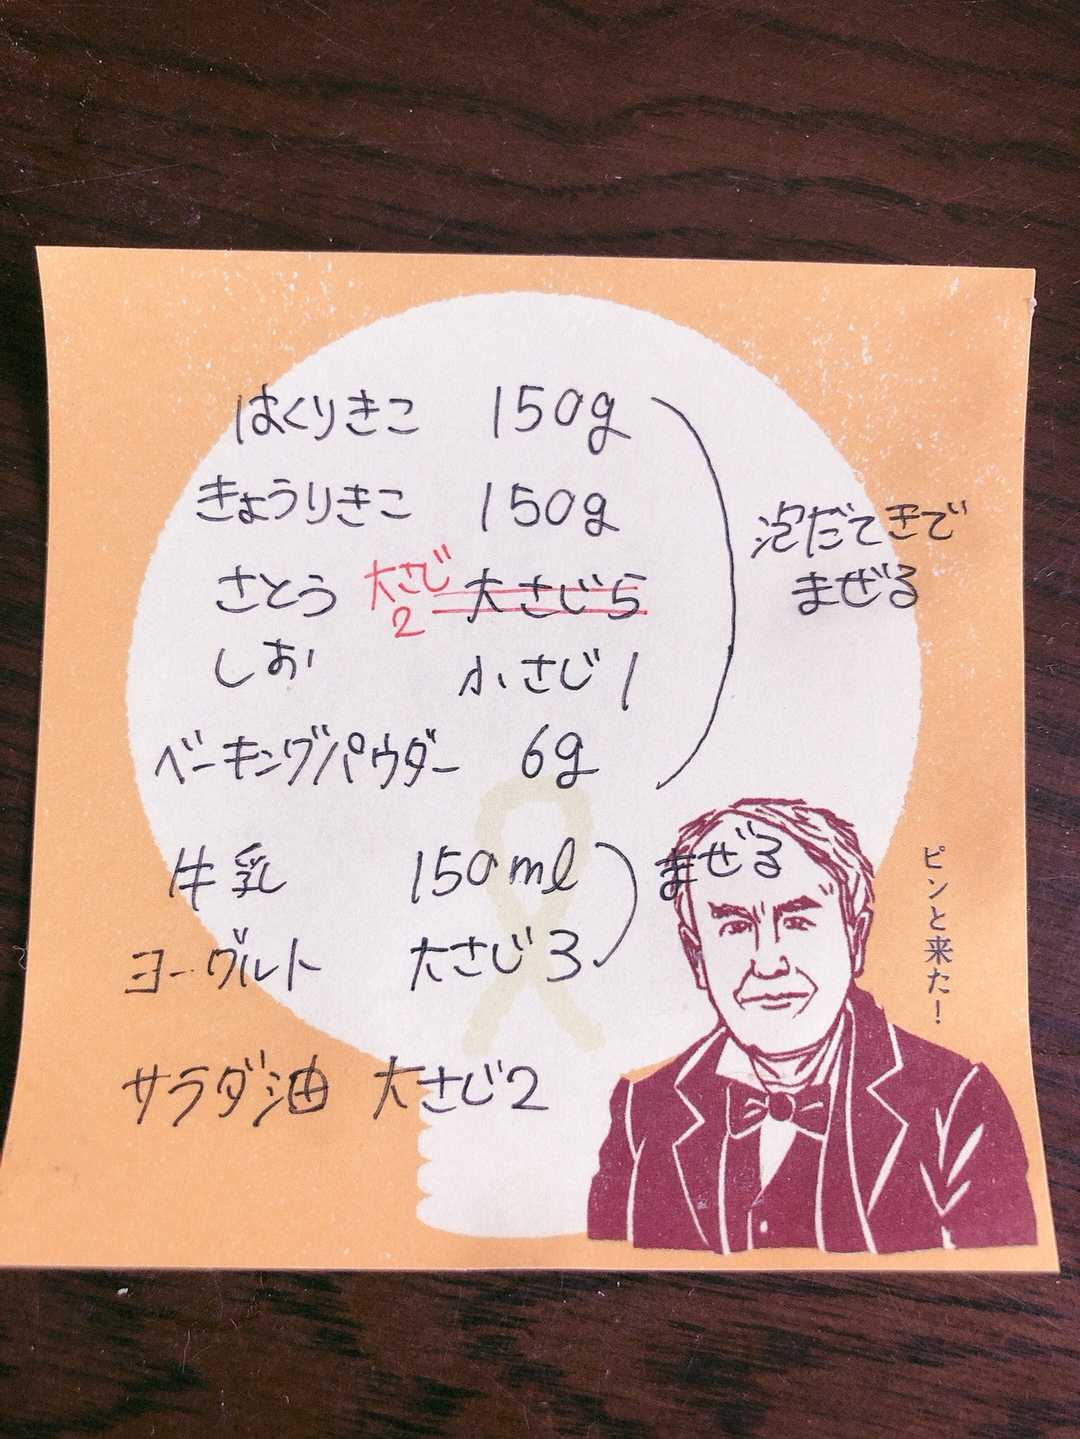 はくりきこ 150g
きょうりきこ 150g
さとう 大さじ2 大さじ5
しお 小さじ1
ベーキングパウダー 6g
泡だてきで
まぜる
牛乳 150ml
ヨーグルト 大さじ3
まぜる
サラダ油 大さじ2
ピンと来た!